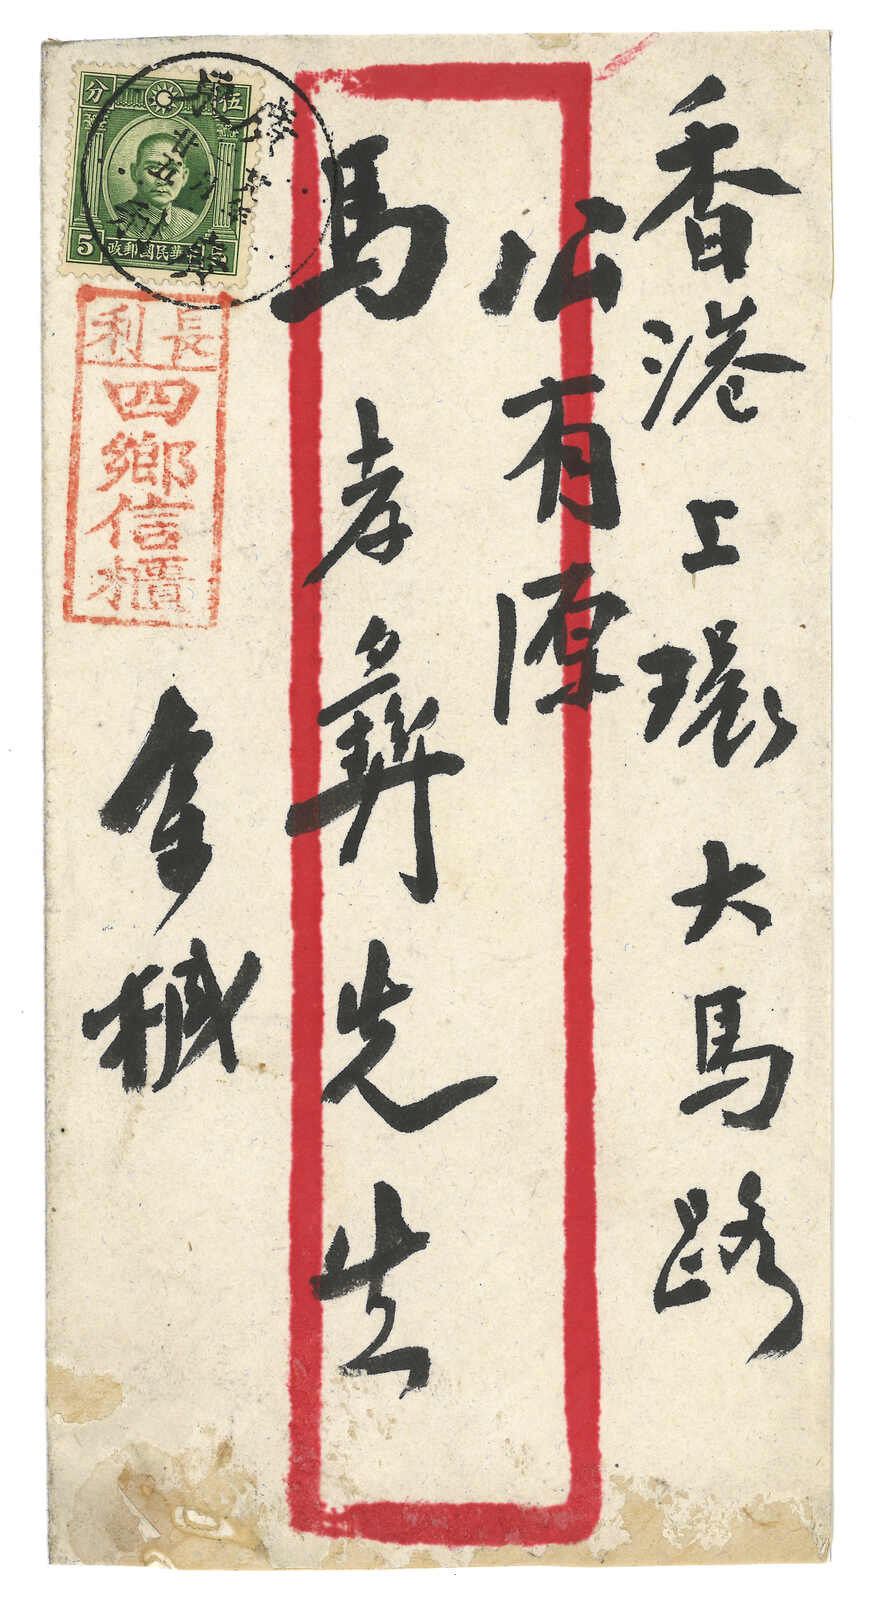 香港上環大馬路
公有源
馬孝彝先生
金械
伍分
5
中華民國郵政
長利
四鄉信櫃